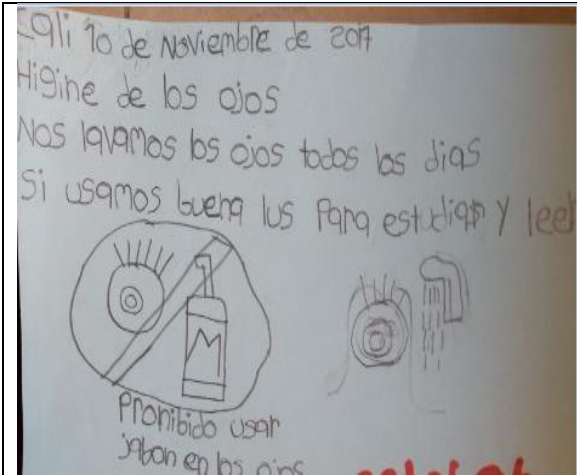 Cali 10 de Noviembre de 2017
Higine de los ojos
Nos lavamos los ojos todos los dias
Si usamos buena lus para estudiar y leer
M
Prohibido usar
jabon en los ojos